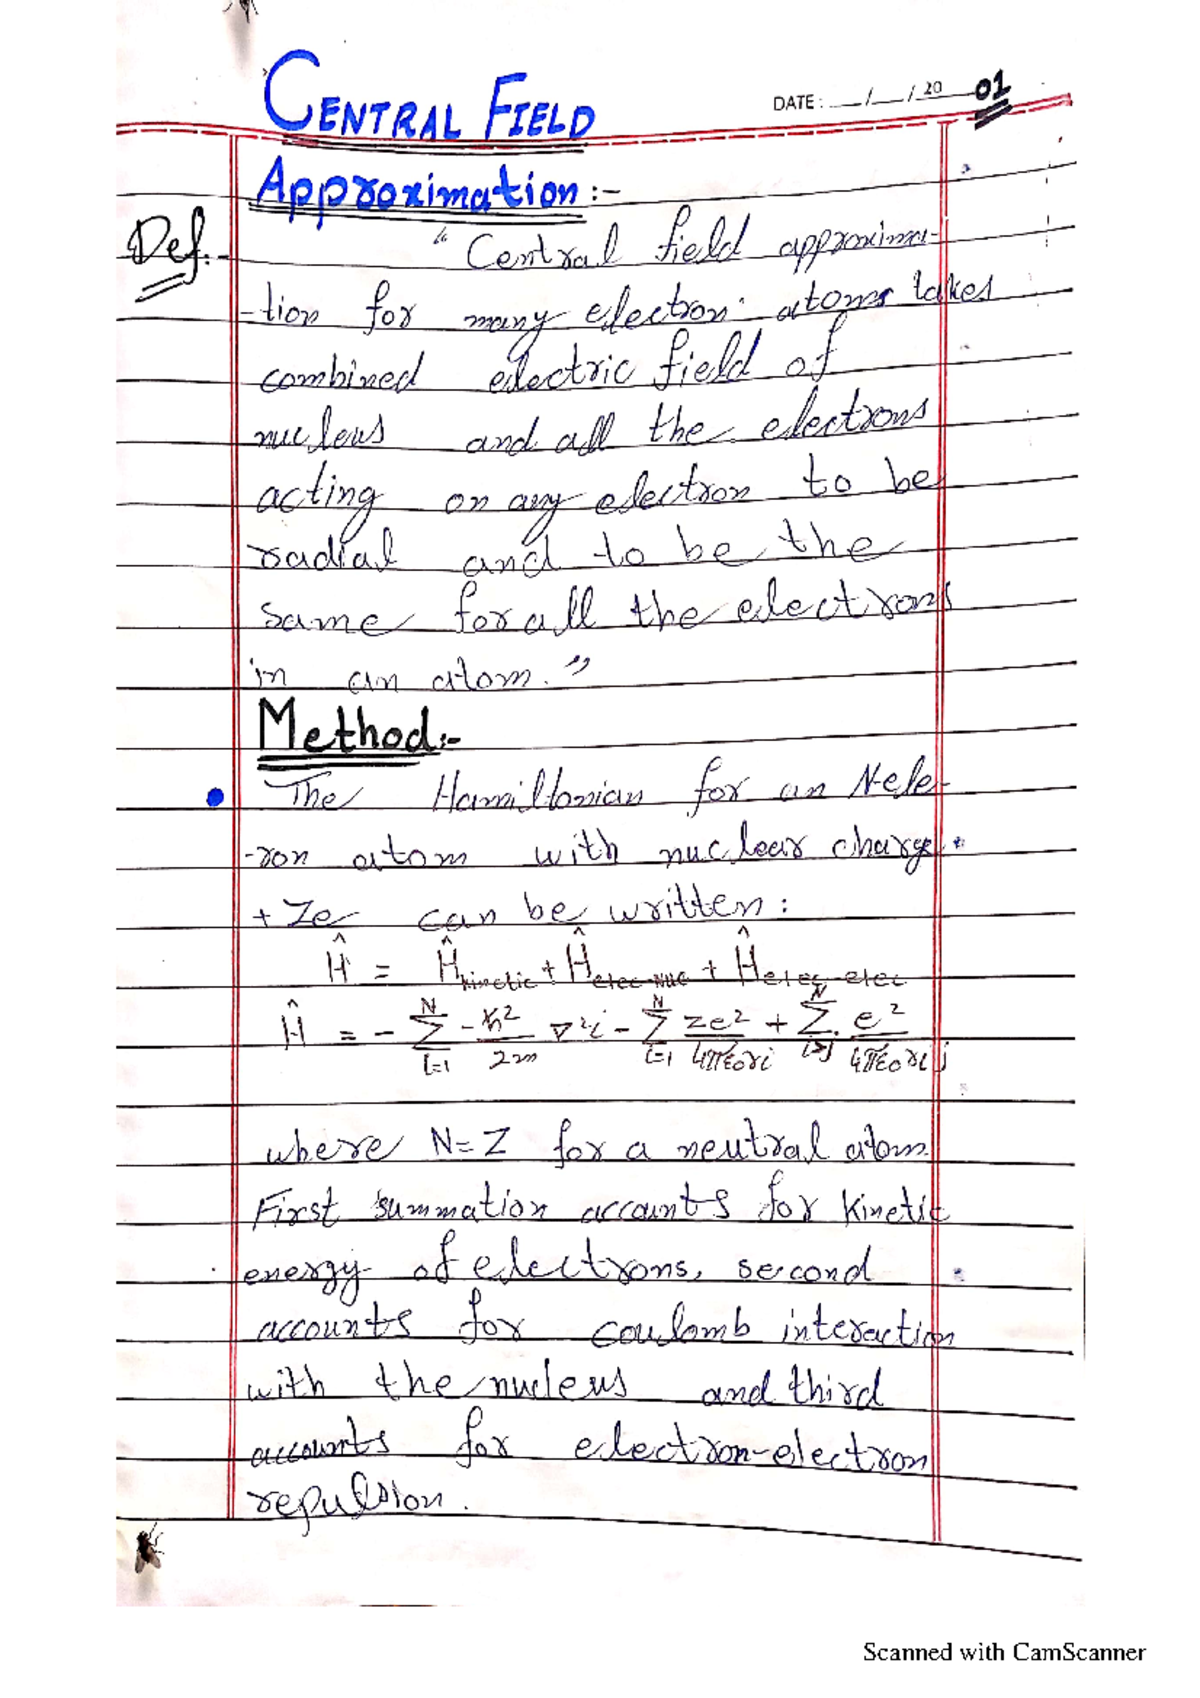 CENTRAL FIELD
DATE: __/__/20 01
Approximation:-
Def:-
" Central field approxima-
-tion for many electron atoms takes
combined electric field of
nucleus and all the electrons
acting on any electron to be
radial and to be the
same for all the electrons
in an atom."
Method:-
• The Hamiltonian for an N-ele-
-ron atom with nuclear charge
+ Ze can be written:
Ĥ = Ĥkinetic + Ĥelec-nuc + Ĥelec-elec
Ĥ = - N∑i=1 -ℏ²/2m ∇²i - N∑i=1 ze²/4πε₀ri + N∑i>j e²/4πε₀rij
where N=Z for a neutral atom.
First summation accounts for kinetic
energy of electrons, second
accounts for coulomb interaction
with the nucleus and third
accounts for electron-electron
repulsion.
Scanned with CamScanner